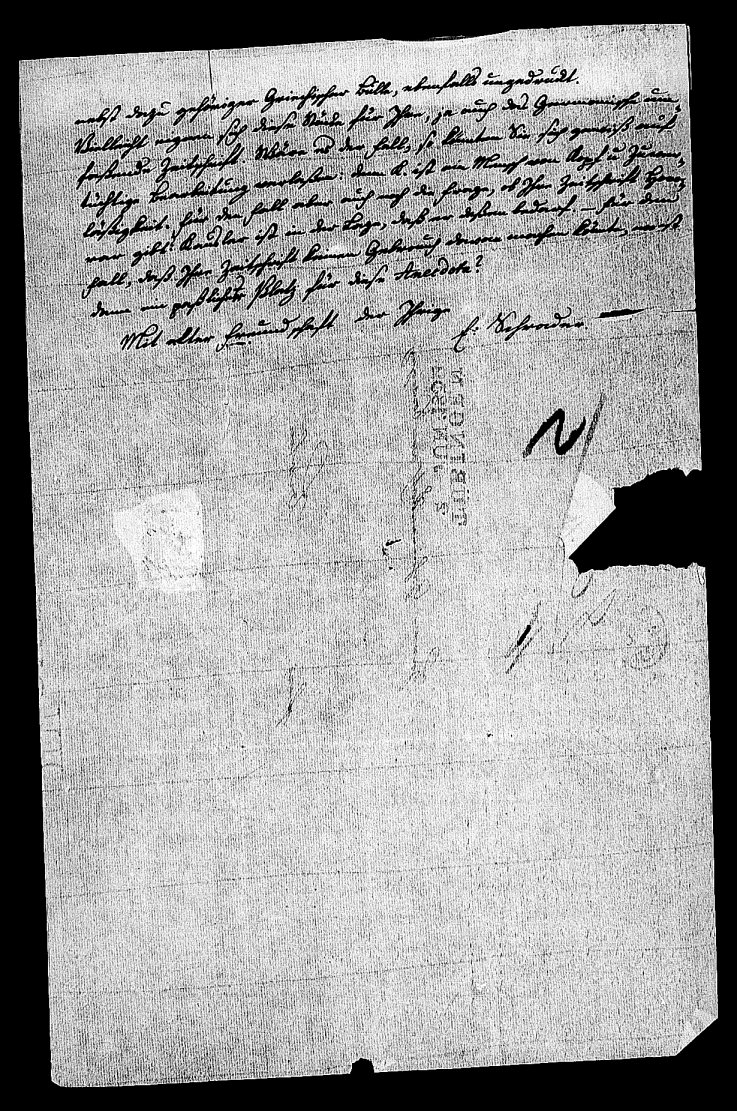 nebst dazu gehöriger Griechischer Bulle, ebenfalls ungedruckt.
Vielleicht eignen sich diese Stücke für Ihre, ja auch das Germanische um-
fassende Zeitschrift. Wäre es der Fall, so könnten Sie sich gewiß auf
tüchtige Bearbeitung verlassen: denn K. ist ein Mensch von Kopf u. Zuver-
lässigkeit. Für den Fall aber auch noch die Frage, ob Ihre Zeitschrift Hono-
rar gibt? Kausler ist in der Lage, daß er dessen bedarf. – Für den
Fall, daß Ihre Zeitschrift keinen Gebrauch davon machen könnte, wo ist
denn ein paßlicher Platz für diese Anecdota?
Mit alter Freundschaft der Ihrige
E. Schrader.